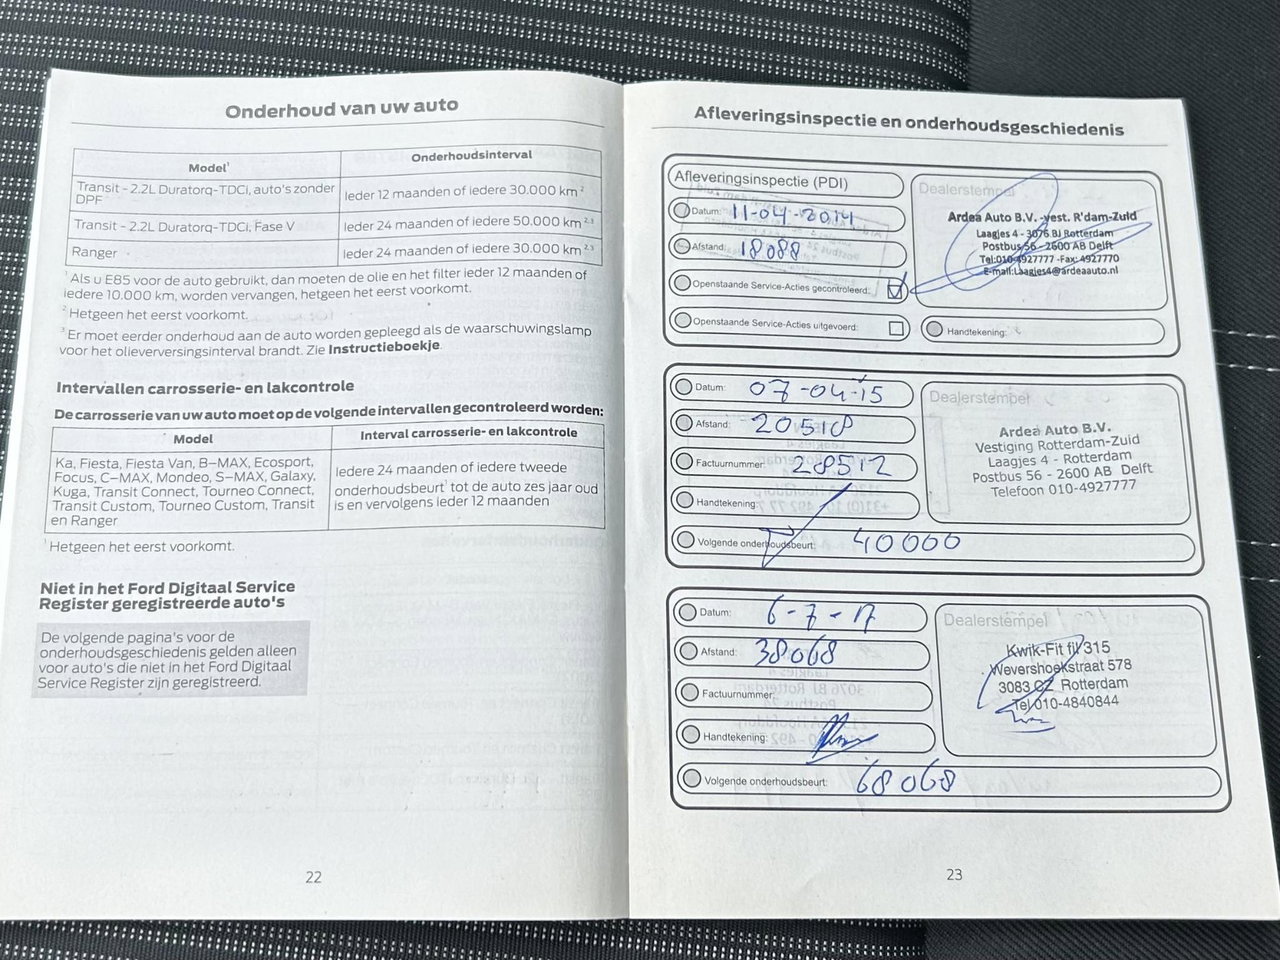 Onderhoud van uw auto
Model¹ Onderhoudsinterval
Transit - 2.2L Duratorq-TDCi, auto's zonder DPF Ieder 12 maanden of iedere 30.000 km ²
Transit - 2.2L Duratorq-TDCi, Fase V Ieder 24 maanden of iedere 50.000 km ²,³
Ranger Ieder 24 maanden of iedere 30.000 km ²,³
¹ Als u E85 voor de auto gebruikt, dan moeten de olie en het filter ieder 12 maanden of
iedere 10.000 km, worden vervangen, hetgeen het eerst voorkomt.
² Hetgeen het eerst voorkomt.
³ Er moet eerder onderhoud aan de auto worden gepleegd als de waarschuwingslamp
voor het olieverversingsinterval brandt. Zie Instructieboekje.
Intervallen carrosserie- en lakcontrole
De carrosserie van uw auto moet op de volgende intervallen gecontroleerd worden:
Model Interval carrosserie- en lakcontrole
Ka, Fiesta, Fiesta Van, B-MAX, Ecosport,
Focus, C-MAX, Mondeo, S-MAX, Galaxy,
Kuga, Transit Connect, Tourneo Connect,
Transit Custom, Tourneo Custom, Transit
en Ranger
Iedere 24 maanden of iedere tweede
onderhoudsbeurt¹ tot de auto zes jaar oud
is en vervolgens ieder 12 maanden
¹ Hetgeen het eerst voorkomt.
Niet in het Ford Digitaal Service
Register geregistreerde auto's
De volgende pagina's voor de
onderhoudsgeschiedenis gelden alleen
voor auto's die niet in het Ford Digitaal
Service Register zijn geregistreerd.
22
Afleveringsinspectie en onderhoudsgeschiedenis
Afleveringsinspectie (PDI)
Datum: 11-04-2014
Afstand: 18088
Openstaande Service-Acties gecontroleerd:
Openstaande Service-Acties uitgevoerd:
Dealerstempel
Ardea Auto B.V. -vest. R'dam-Zuid
Laagjes 4 - 3076 BJ Rotterdam
Postbus 56 - 2600 AB Delft
Tel:010-4927777 -Fax: 4927770
E-mail:Laagjes4@ardeaauto.nl
Handtekening:
Datum: 07-04-15
Afstand: 20518
Factuurnummer: 28512
Handtekening:
Volgende onderhoudsbeurt: 40000
Dealerstempel
Ardea Auto B.V.
Vestiging Rotterdam-Zuid
Laagjes 4 - Rotterdam
Postbus 56 - 2600 AB Delft
Telefoon 010-4927777
Datum: 6-7-17
Afstand: 38068
Factuurnummer:
Handtekening:
Volgende onderhoudsbeurt: 68068
Dealerstempel
Kwik-Fit fil 315
Wevershoekstraat 578
3083 CZ Rotterdam
Tel 010-4840844
23